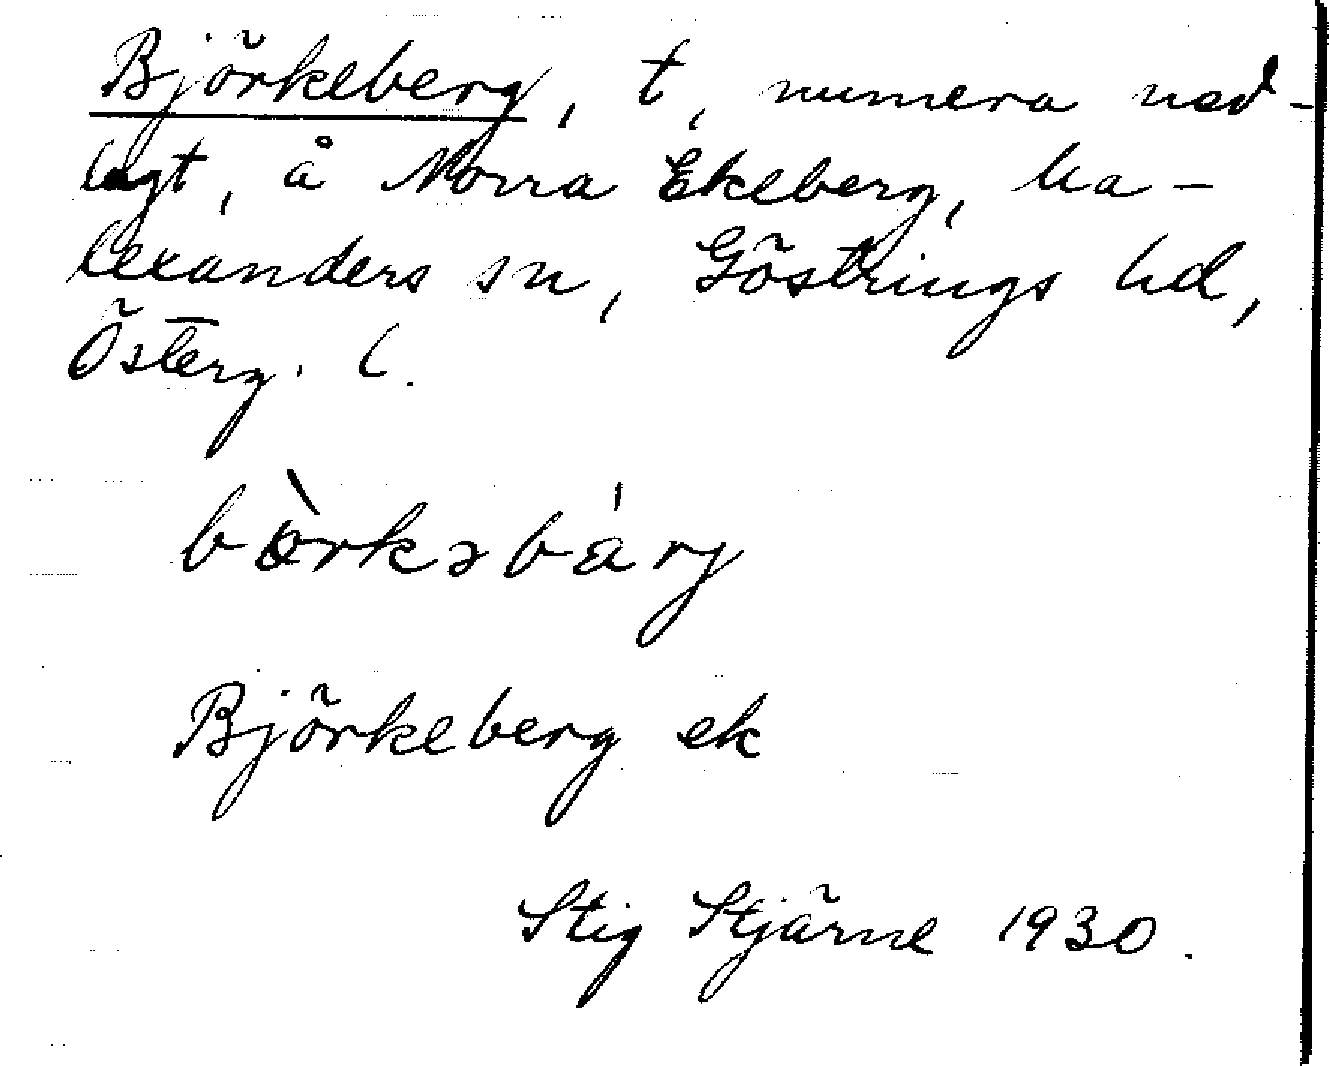 Björkeberg, t, numera ned-
lagt, å Norra Ekeberg, Ha-
lexanders sn, Göstrings hd,
Österg. l.
bòrkəbá rj
Björkeberg ek
Stig Stjärne 1930.